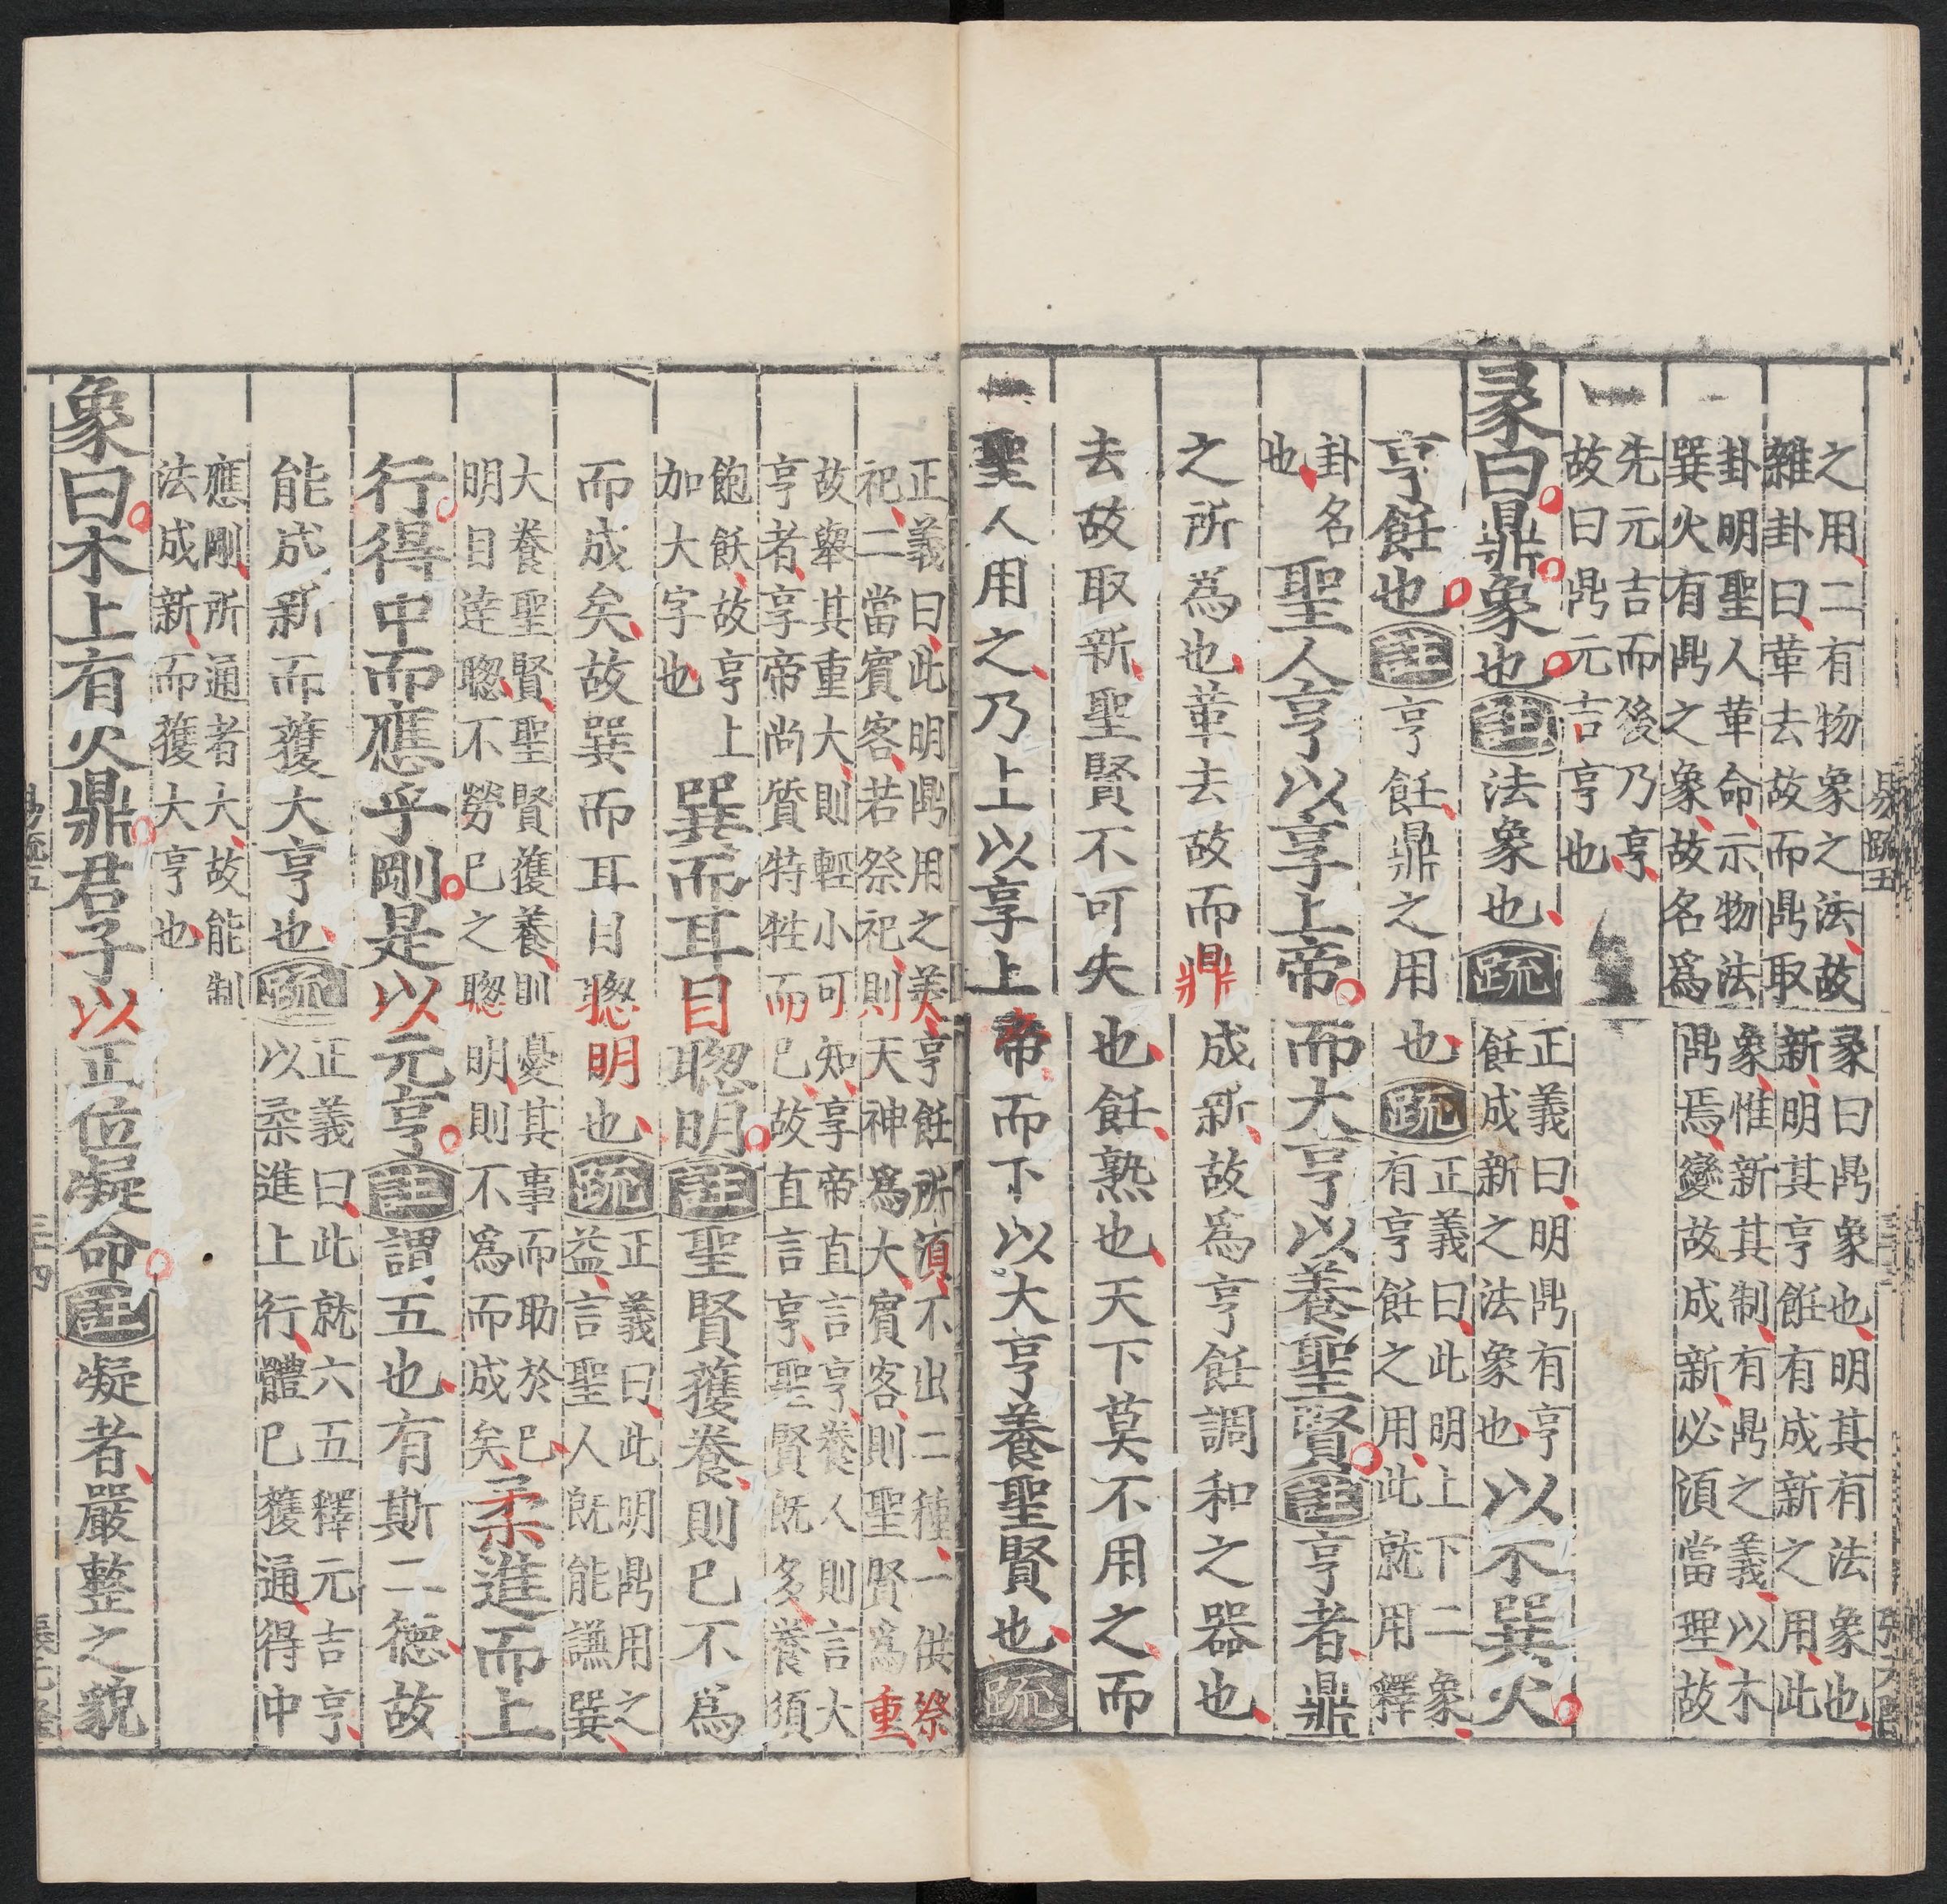 易疏五
之用二有物象之法故彖曰鼎象也明其有法象也
雜卦曰革去故而鼎取新明其亨飪有成新之用此
卦明聖人革命示物法象惟新其制有鼎之義以木
巽火有鼎之象故名爲鼎焉變故成新必須當理故
先元吉而後乃亨
故曰鼎元吉亨也
彖曰鼎象也註法象也疏
正義曰明鼎有亨
飪成新之法象也
以木巽火
亨飪也註亨飪鼎之用也疏
正義曰此明上下二象
有亨飪之用此就用釋
卦名
也
聖人亨以享上帝而大亨以養聖賢註亨者鼎
之所爲也革去故而鼎成新故爲亨飪調和之器也
去故取新聖賢不可失也飪熟也天下莫不用之而
聖人用之乃上以享上帝而下以大亨養聖賢也疏
正義曰此明鼎用之美亨飪所須不出二種一供祭
祀二當賓客若祭祀則天神爲大賓客則聖賢爲重
故舉其重大則輕小可知享帝直言亨養人則言大
亨者享帝尚質特牲而已故直言亨聖賢既多養須
飽飫故亨上
加大字也
巽而耳目聦明註聖賢獲養則已不爲
而成矣故巽而耳目聰明也疏
正義曰此明鼎用之
益言聖人既能謙巽
大養聖賢聖賢獲養則憂其事而助於巳
明目達聦不勞巳之聰明則不爲而成矣
柔進而上
行得中而應乎剛是以元亨註謂五也有斯二德故
能成新而獲大亨也疏
正義曰此就六五釋元吉亨
以柔進上行體巳獲通得中
應剛所通者大故能制
法成新而獲大亨也
象曰木上有火鼎君子以正位凝命註凝者嚴整之貌